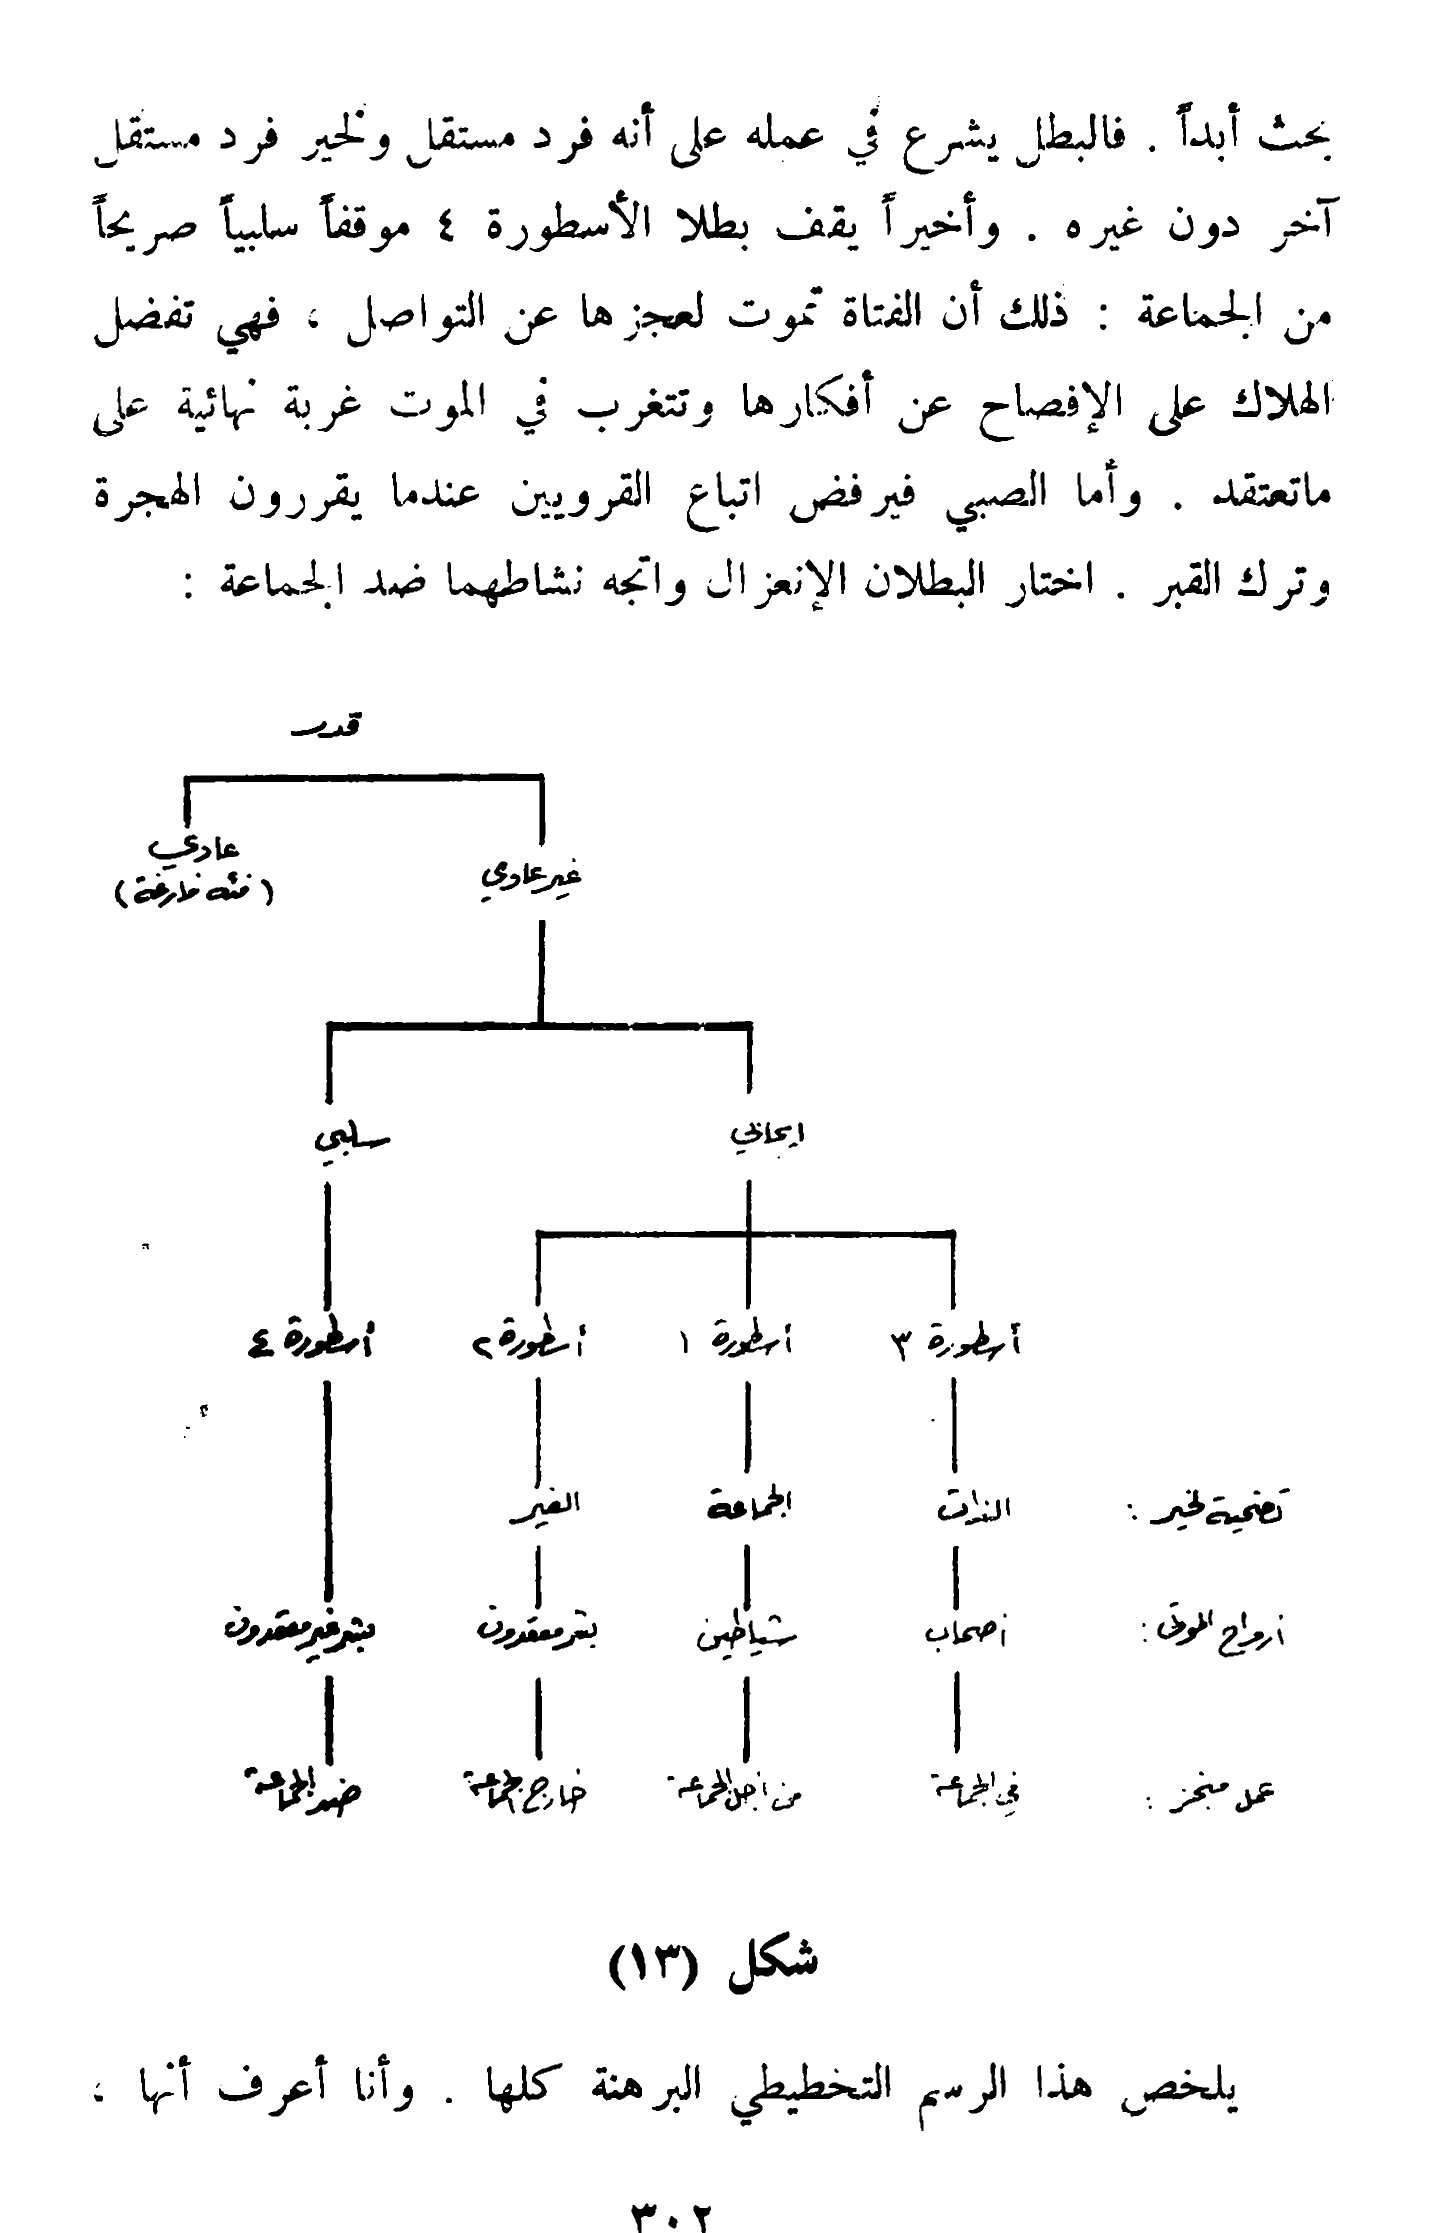 بحث أبداً . فالبطل يشرع في عمله على أنه فرد مستقل ولخير فرد مستقل
آخر دون غيره . وأخيراً يقف بطلا الأسطورة ٤ موقفاً سلبياً صريحاً
من الجماعة : ذلك أن الفتاة تموت لعجزها عن التواصل ، فهي تفضل
الهلاك على الإفصاح عن أفكارها وتتغرب في الموت غربة نهائية على
ماتعتقد . وأما الصبي فيرفض اتباع القرويين عندما يقررون الهجرة
وترك القبر . اختار البطلان الإنعزال واتجه نشاطهما ضد الجماعة :
قدر
غير عادي عادي
(فئة فارغة)
ايجابي سلبي
أسطورة ٣ أسطورة ١ أسطورة ٢ أسطورة ٤
تضحية لخير : الذات الجماعة الغير
أرواح الموتى : أصحاب شياطين بشر معقدون بشر غير معقدون
عمل منجز : في الجماعة من أجل الجماعة خارج الجماعة ضد الجماعة
شكل (١٣)
يلخص هذا الرسم التخطيطي البرهنة كلها . وأنا أعرف أنها ،
٣٠٢